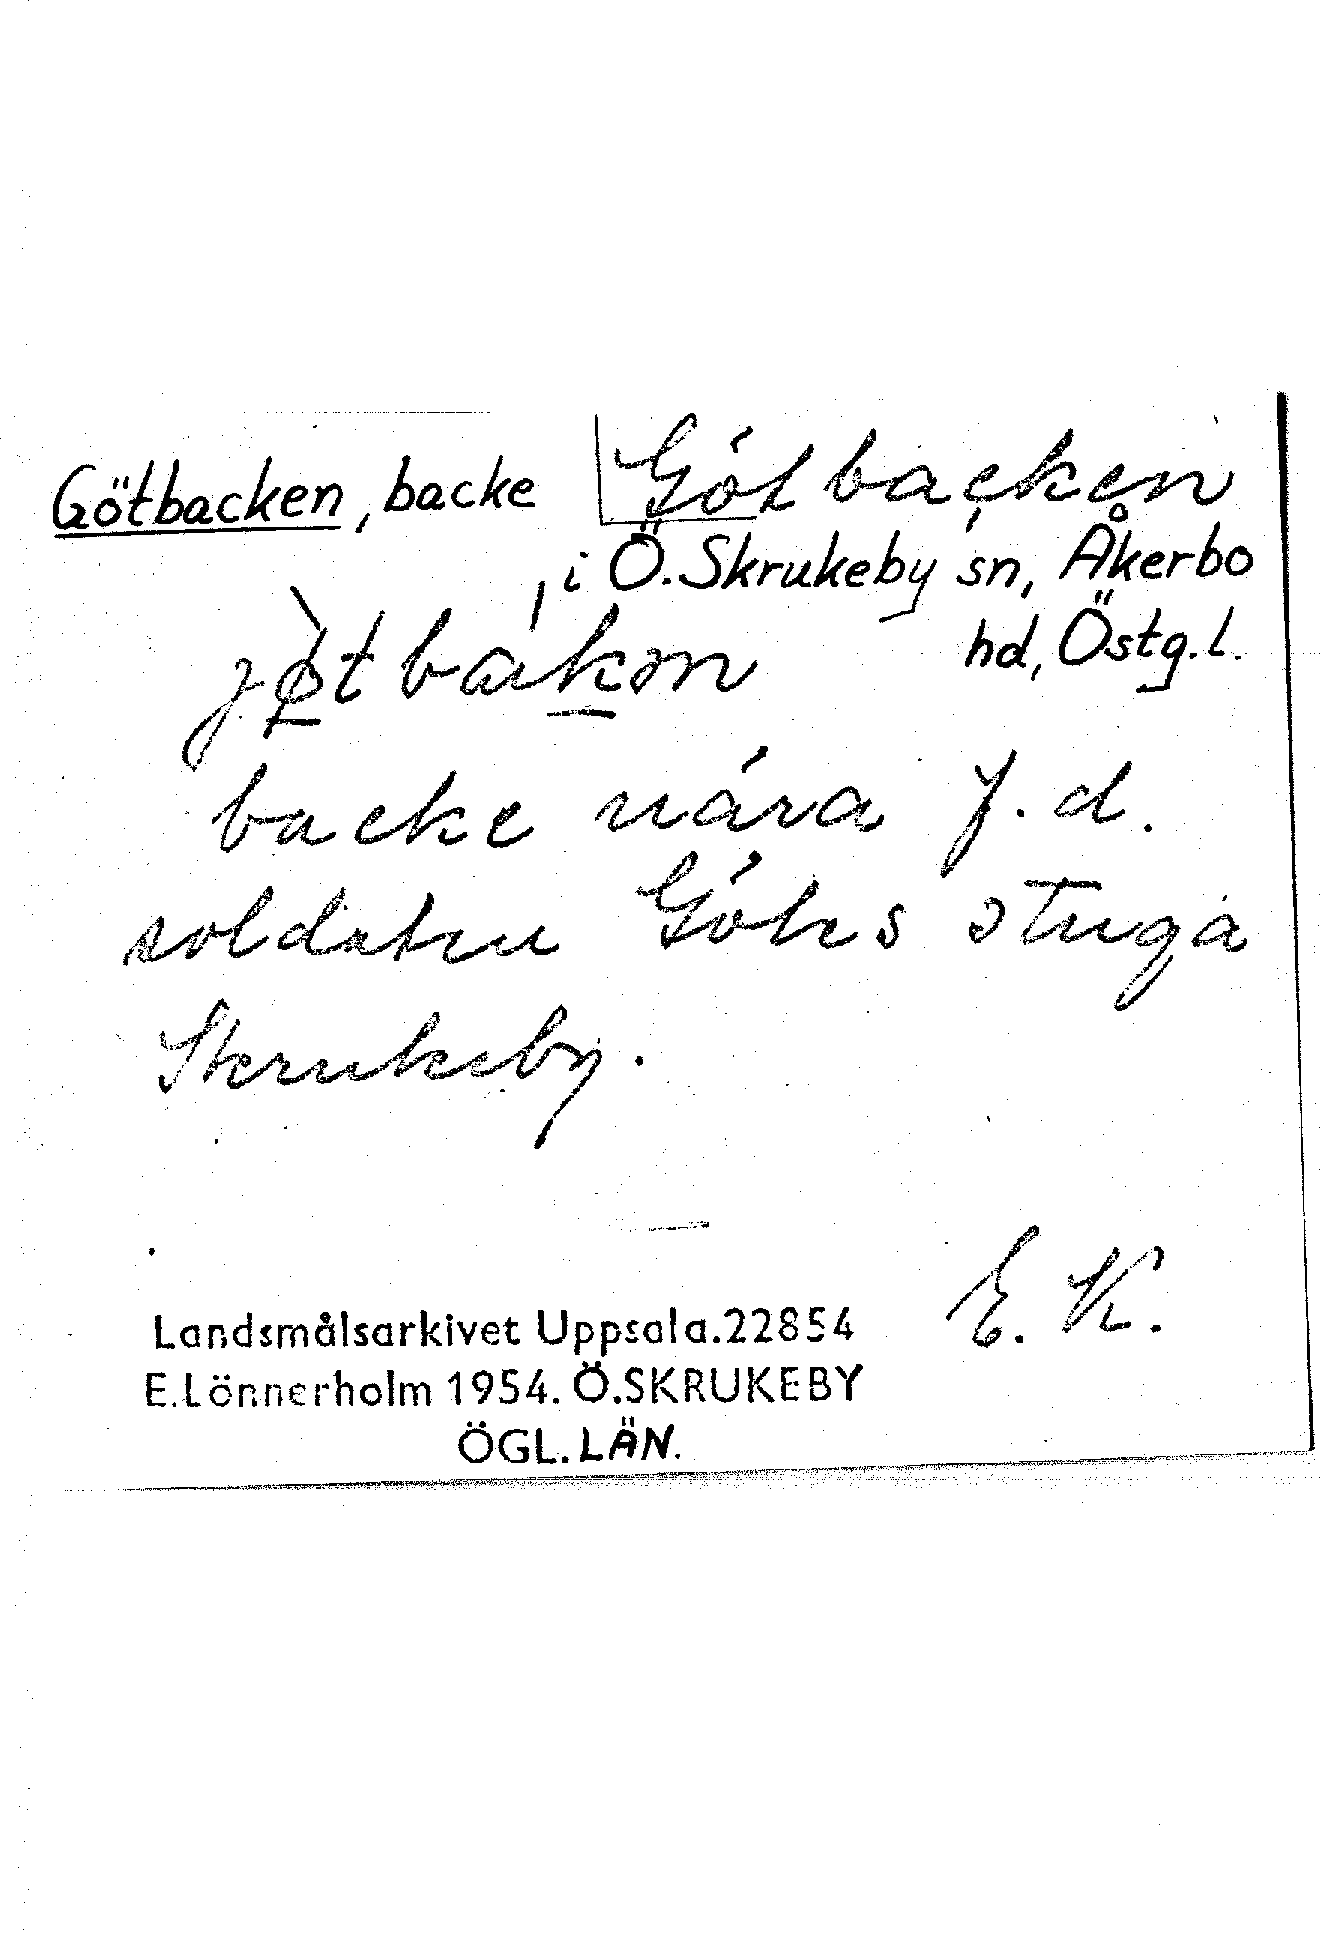 Götbacken, backe
Götbacken
, i Ö. Skrukeby sn, Åkerbo
hd, Östg. l.
jøtbakən
backe nära f. d.
soldaten Göts stuga
Skrukeby.
E. K.
Landsmålsarkivet Uppsala.22854
E.Lönnerholm 1954. Ö.SKRUKEBY
ÖGL. LÄN.